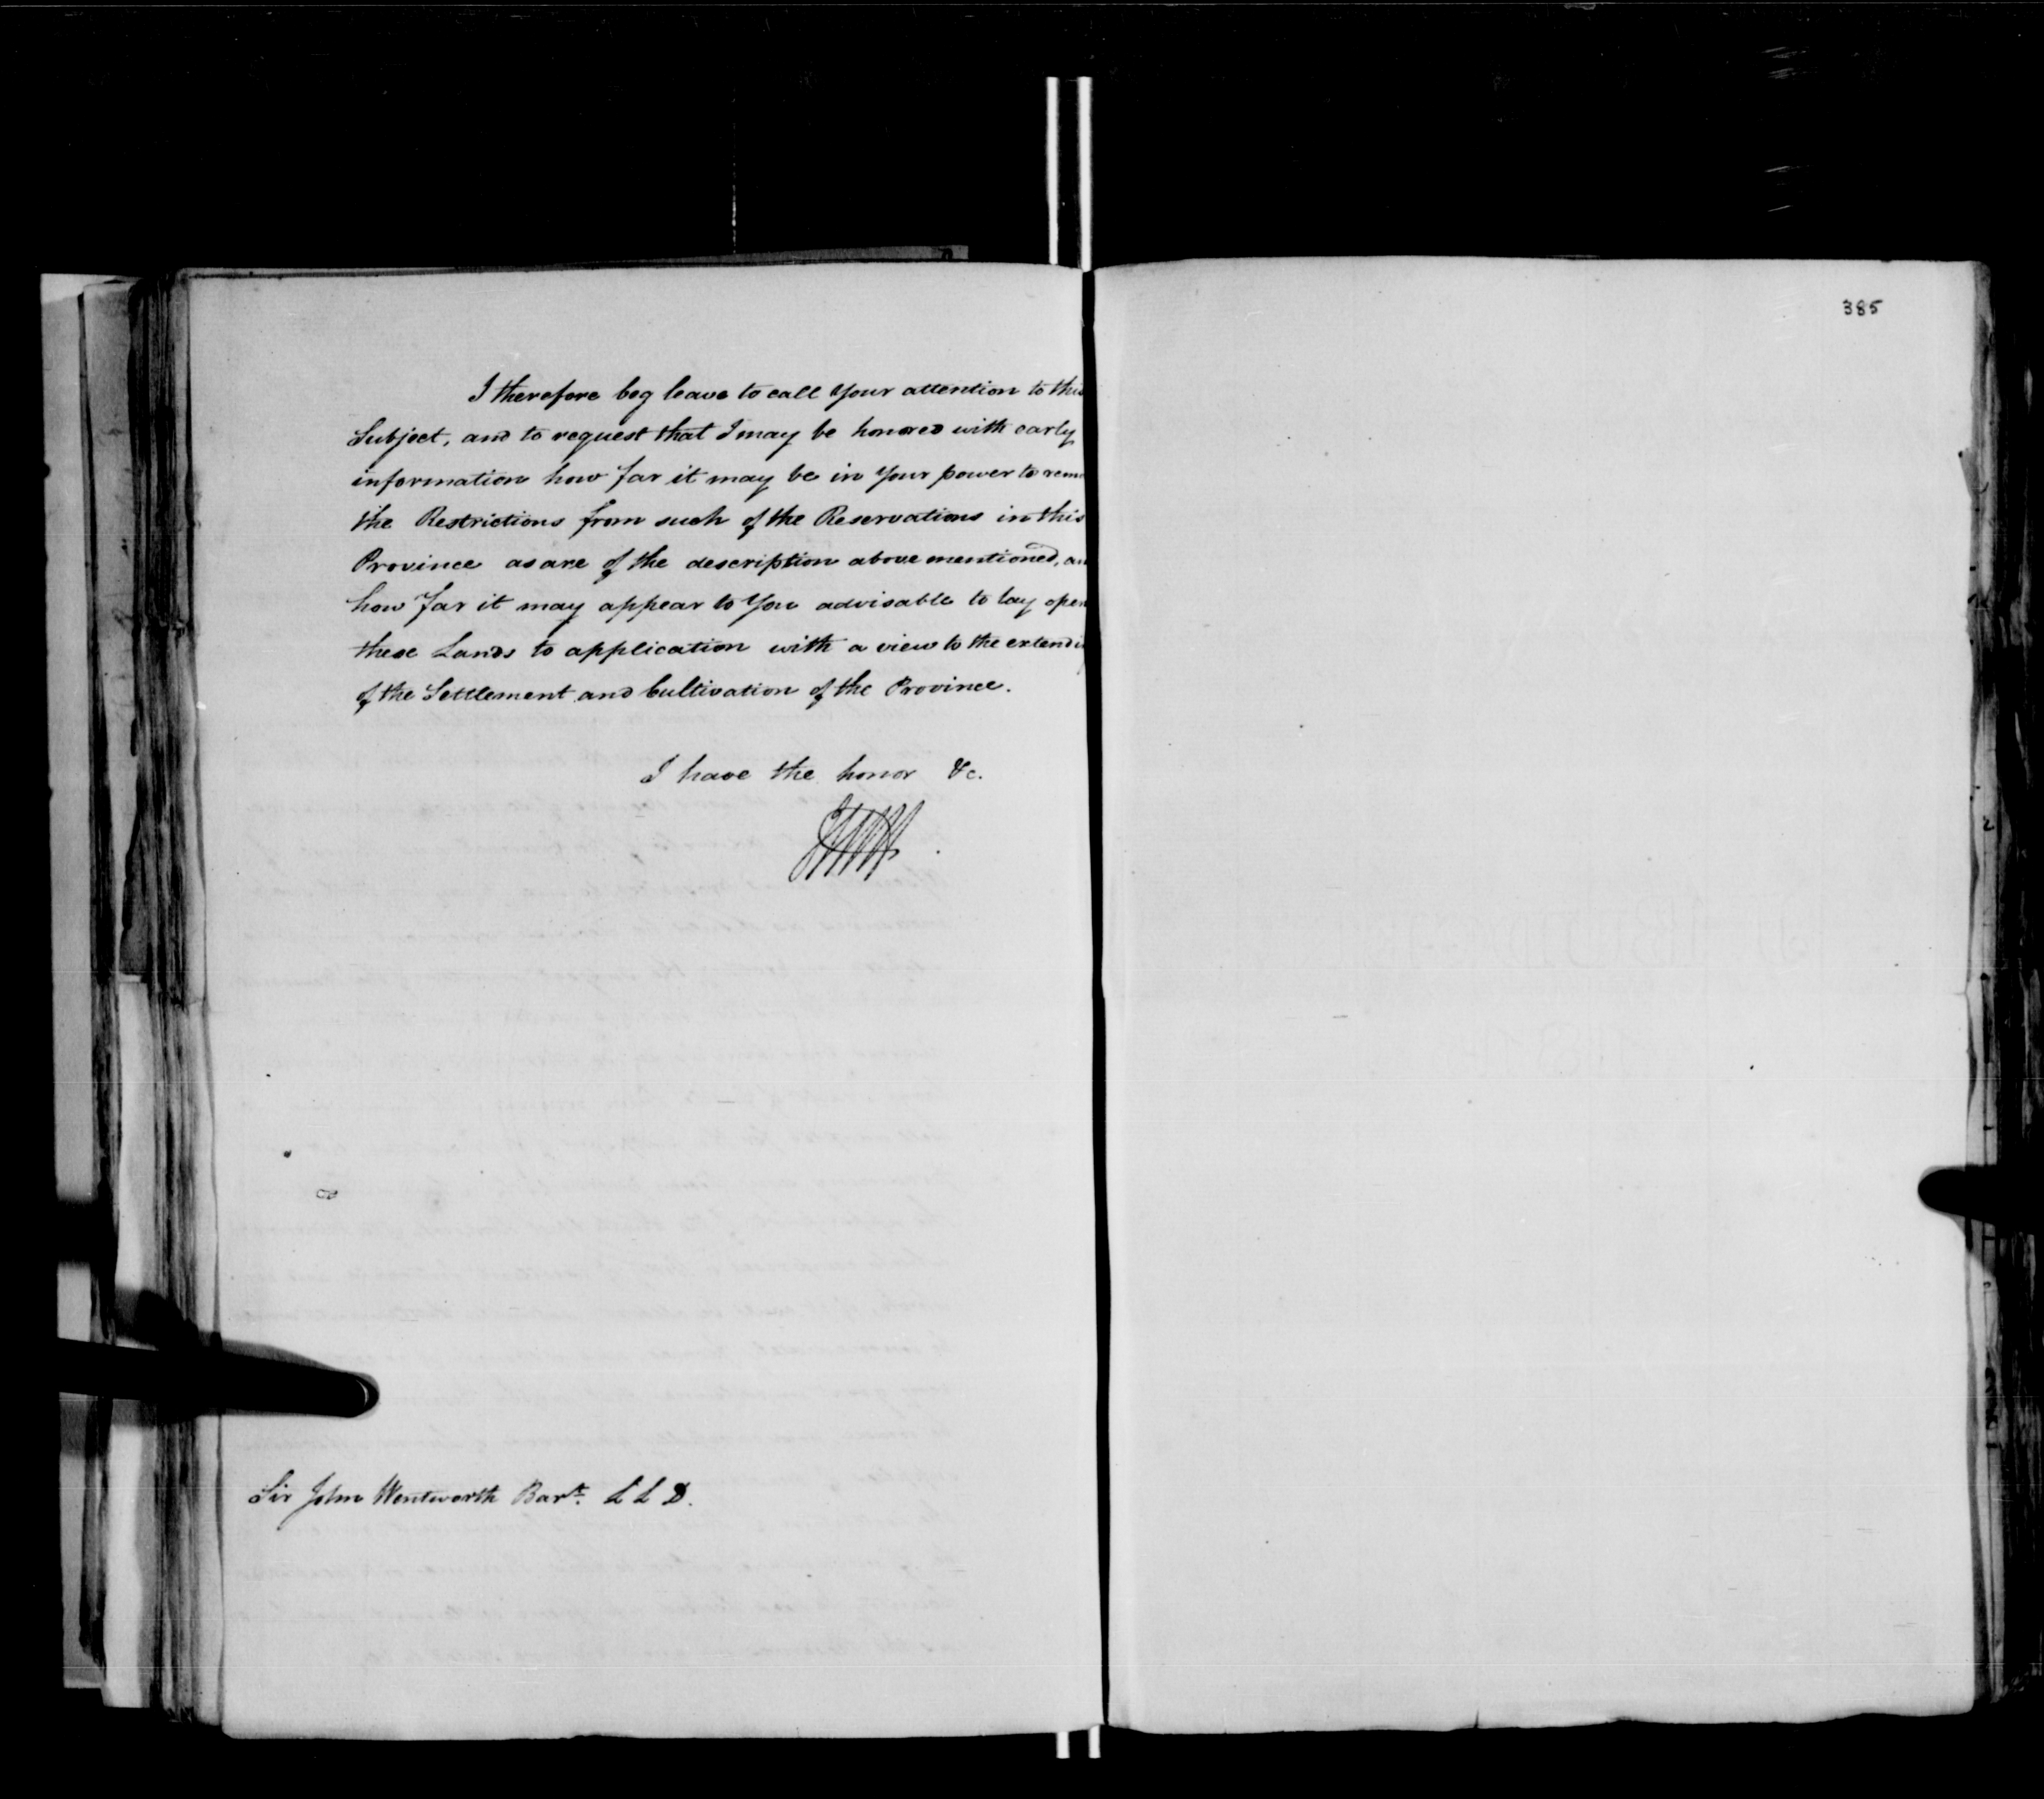 I therefore beg leave to call Your attention to this
Subject, and to request that I may be honored with early
information how far it may be in Your power to
the Restrictions from such of the Reservations in this
Province as are of the description above mentioned,
how far it may appear to You advisable to lay open
these Lands to application with a view to the
of the Settlement and Cultivation of the Province.
I have the honor &c.
Sir John Wentworth Bart. L L D.
385